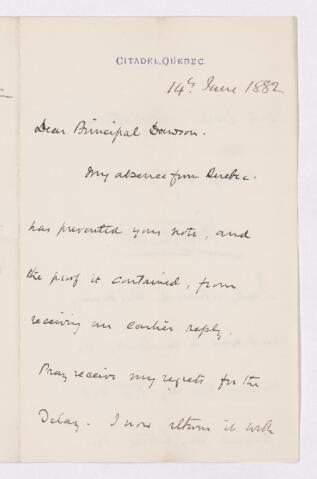 CITADEL, QUEBEC.
14th June 1882
Dear Principal Dawson.
My absence from Quebec.
has prevented your note, and
the proof it contained, from
receiving an earlier reply.
Pray receive my regrets for the
Delay. I now return it with